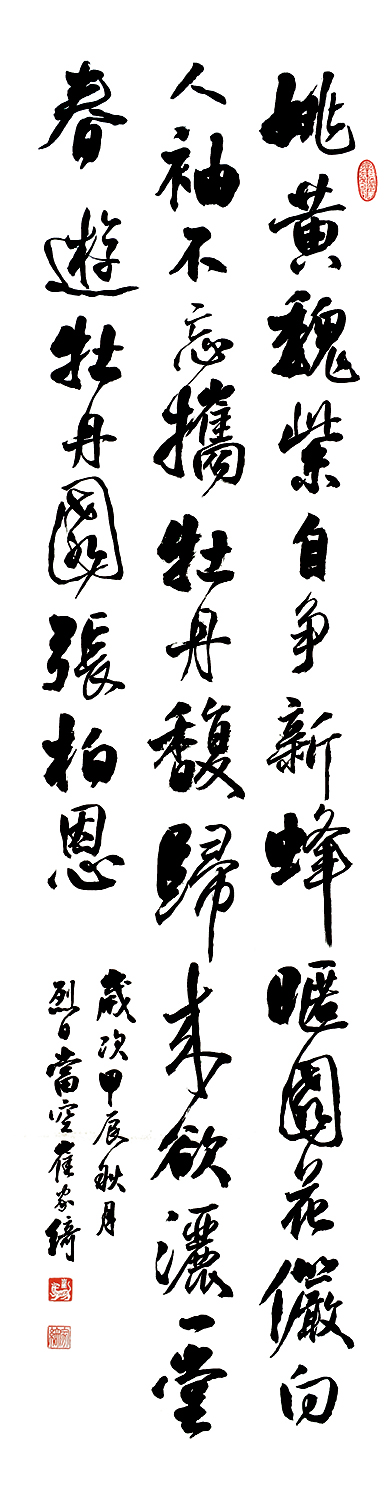 姚黄魏紫自争新蜂暱園花儼向
人袖不忘攜牡丹馥歸來欲灑一堂
春遊牡丹園張柏恩
歲次甲辰秋月
烈日當空崔家綺